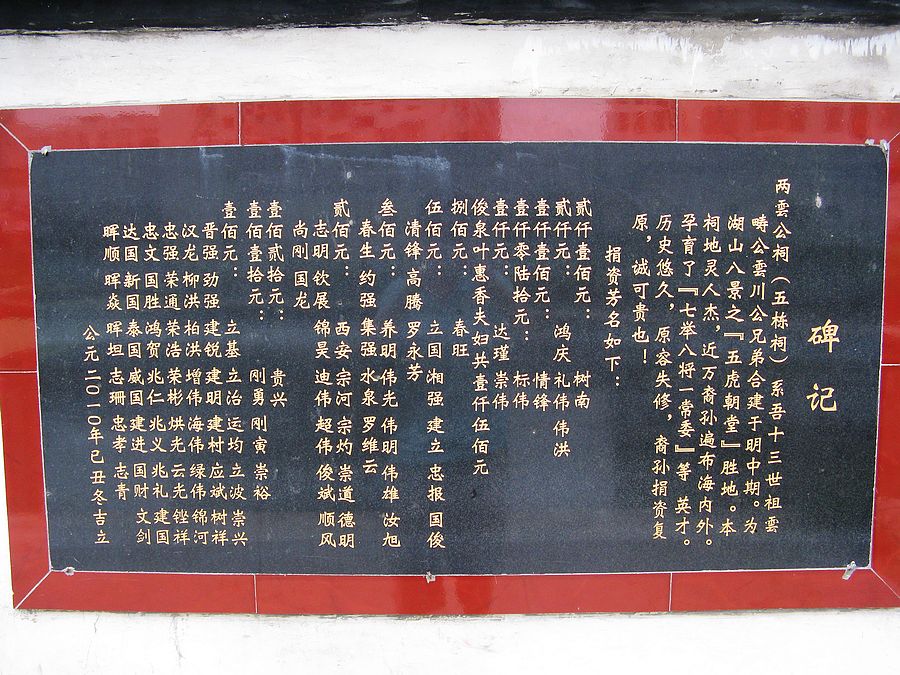 碑记
两雲公祠（五栋祠）系吾十三世祖雲
畴公雲川公兄弟合建于明中期。为
湖山八景之『五虎朝堂』胜地。本
祠地灵人杰，近万裔孙遍布海内外。
孕育了『七举八将一常委』等英才。
历史悠久，原容失修，裔孙捐资复
原，诚可贵也！
捐资芳名如下：
贰仟壹佰元：树南
贰仟元：鸿庆 礼伟 伟洪
壹仟壹佰元：情锋
壹仟零陆拾元：标伟
壹仟元：达瑾 崇伟
俊泉叶惠香夫妇共壹仟伍佰元
捌佰元：春旺
伍佰元：立国 湘强 建立 忠报 国俊
清锋 高腾 罗永芳
叁佰元：养明 伟光 伟明 伟雄 汝旭
春生 约强 集强 水泉 罗维云
贰佰元：西安 宗河 宗灼 崇道 德明
志明 钦展 锦昊 迪伟 超伟 俊斌 顺风
尚刚 国龙
壹佰贰拾元：贵兴
壹佰壹拾元：刚勇 刚寅 崇裕
壹佰元：立基 立治 运均 立波 崇兴
晋强 劲强 建锐 建明 建村 应斌 树祥
汉龙 柳洪 柏洪 增伟 海伟 绿伟 锦河
忠强 荣通 荣浩 荣彬 烘光 云光 铿祥
忠文 国胜 鸿贺 兆仁 兆义 兆礼 建国
达国 新国 泰国 威国 建进 国财 文剑
晖顺 晖焱 晖坦 志珊 忠孝 志青
公元二〇一〇年己丑冬吉立